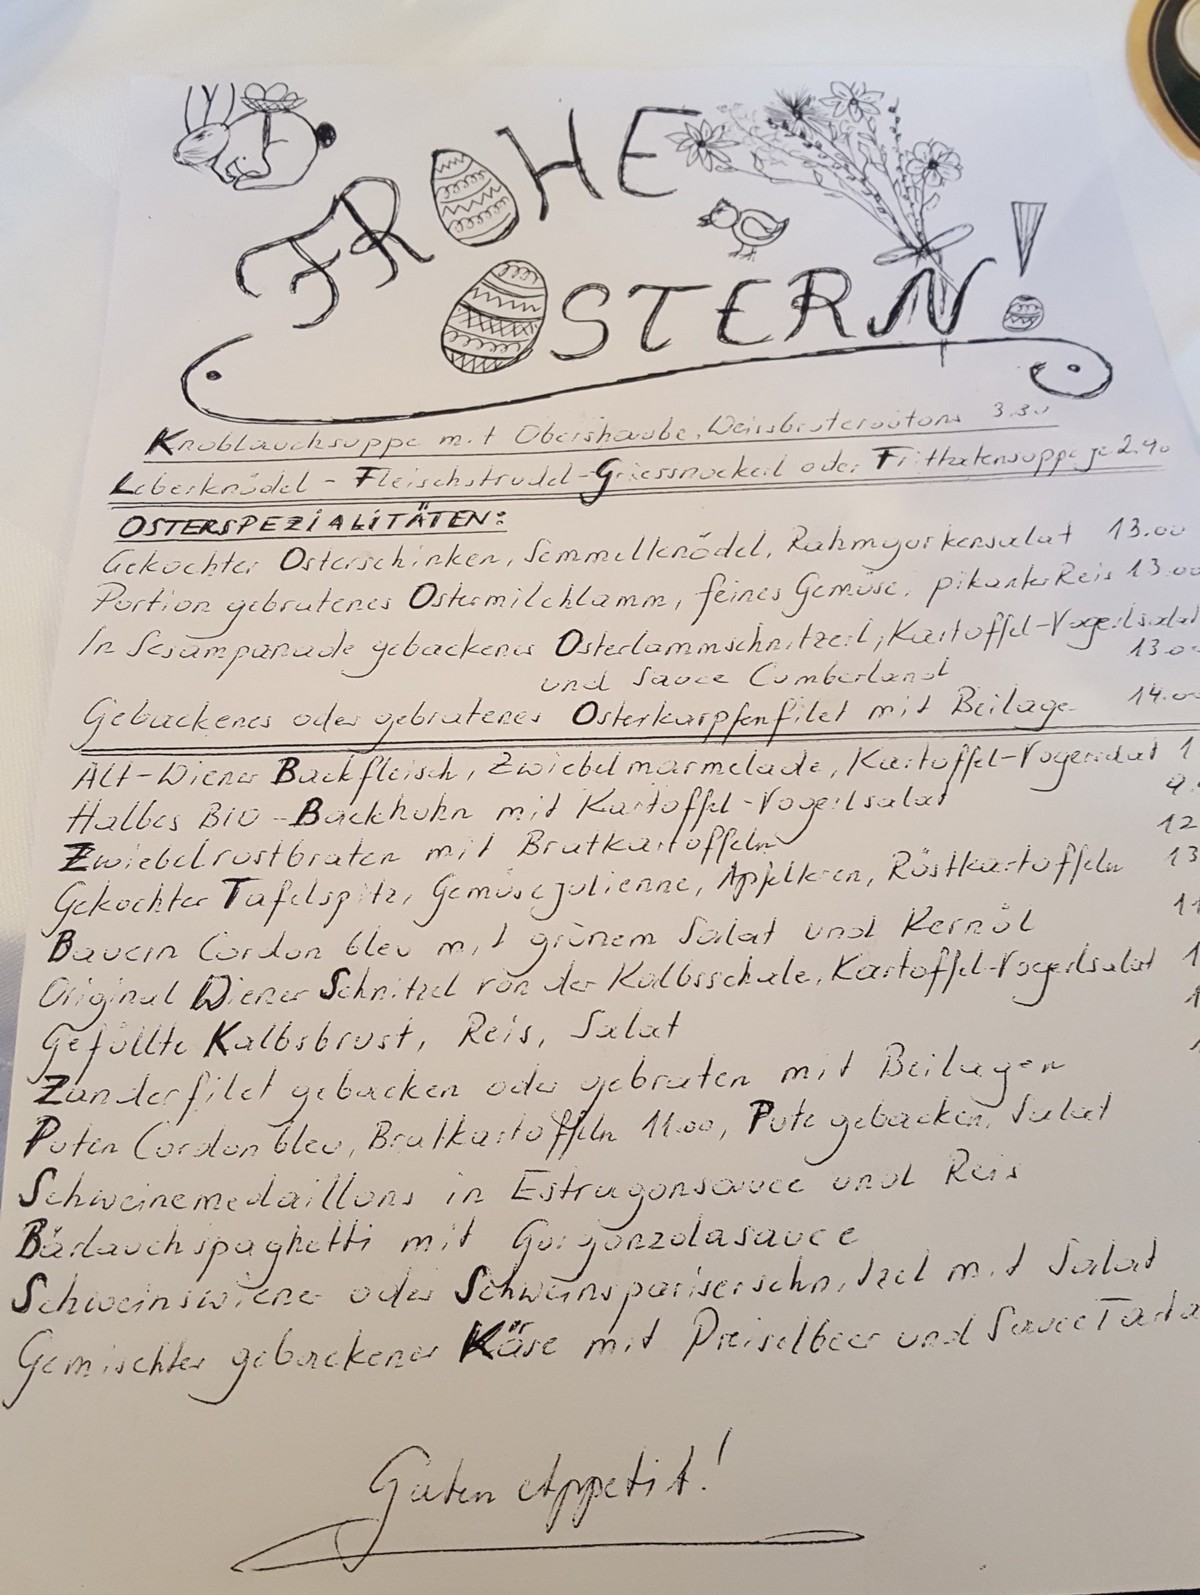 FROHE
OSTERN!
Knoblauchsuppe mit Obershaube, Weissbrotcroûtons 3.30
Leberknödel - Fleischstrudel - Griessnockerl oder Frittatensuppe je 2.90
OSTERSPEZIALITÄTEN:
Gekochter Osterschinken, Semmelknödel, Rahmgurkensalat 13.00
Portion gebratenes Ostermilchlamm, feines Gemüse, pikanter Reis 13.00
In Sesampanade gebackenes Osterlammschnitzerl, Kartoffel-Vogerlsalat
und Sauce Cumberland 13.0
Gebackenes oder gebratenes Osterkarpfenfilet mit Beilage 14.0
Alt-Wiener Backfleisch, Zwiebelmarmelade, Kartoffel-Vogerlsalat 1
Halbes BIO-Backhuhn mit Kartoffel-Vogerlsalat 9.
Zwiebelrostbraten mit Bratkartoffeln 12
Gekochter Tafelspitz, Gemüsejulienne, Apfelkren, Röstkartoffeln 13
Bauern Cordon bleu mit grünem Salat und Kernöl 11
Original Wiener Schnitzel von der Kalbsschale, Kartoffel-Vogerlsalat 1
Gefüllte Kalbsbrust, Reis, Salat 1
Zanderfilet gebacken oder gebraten mit Beilagen 1
Puten Cordon bleu, Bratkartoffeln 11.00, Pute gebacken, Salat
Schweinemedaillons in Estragonsauce und Reis
Bärlauchspaghetti mit Gorgonzolasauce
Schweinswiener oder Schweinspariserschnitzel mit Salat
Gemischter gebackener Käse mit Preiselbeer und Sauce Tarta
Guten Appetit!